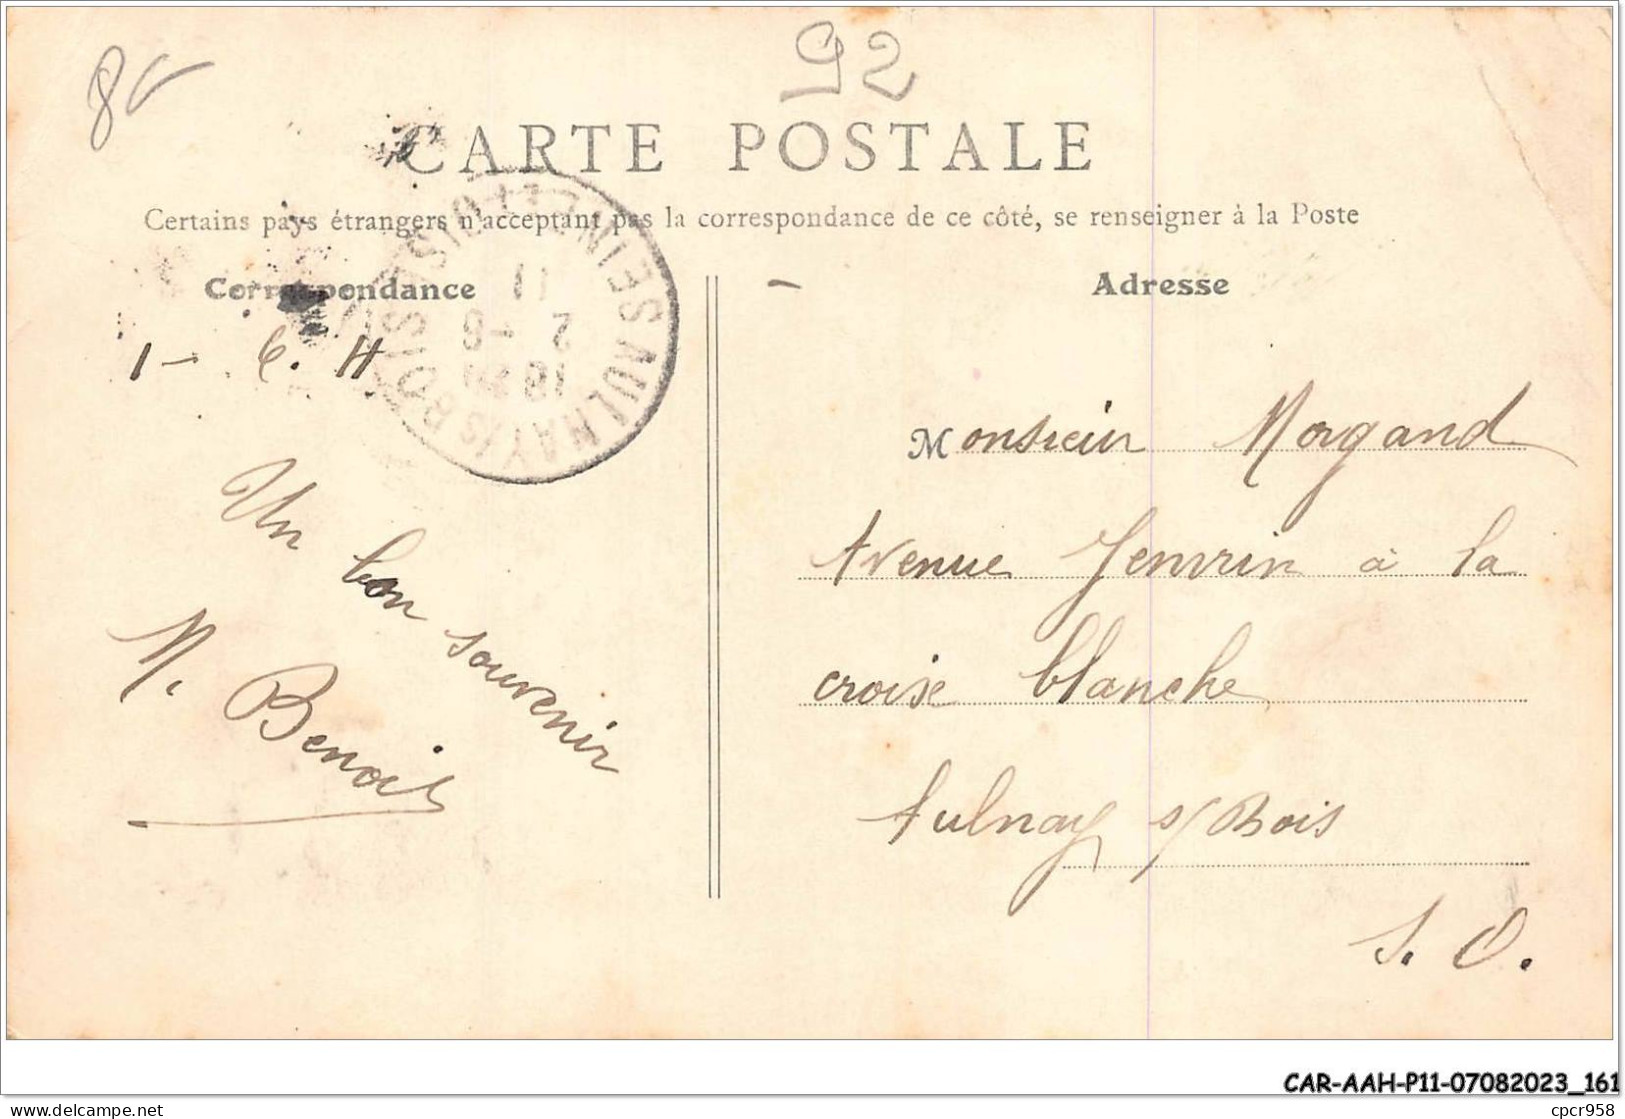 92
CARTE POSTALE
Certains pays étrangers n'acceptant pas la correspondance de ce côté, se renseigner à la Poste
Correspondance
Adresse
SEINE-ET-OISE
AULNAY-S-BOIS
2 - 6
11
1 - 6. 11
Un bon souvenir
M. Benoit
Monsieur Morgand
Avenue Jenvrin à la
croise blanche
Aulnay s/ Bois
S. O.
CAR-AAH-P11-07082023_161
Delcampe.net
cpcr958